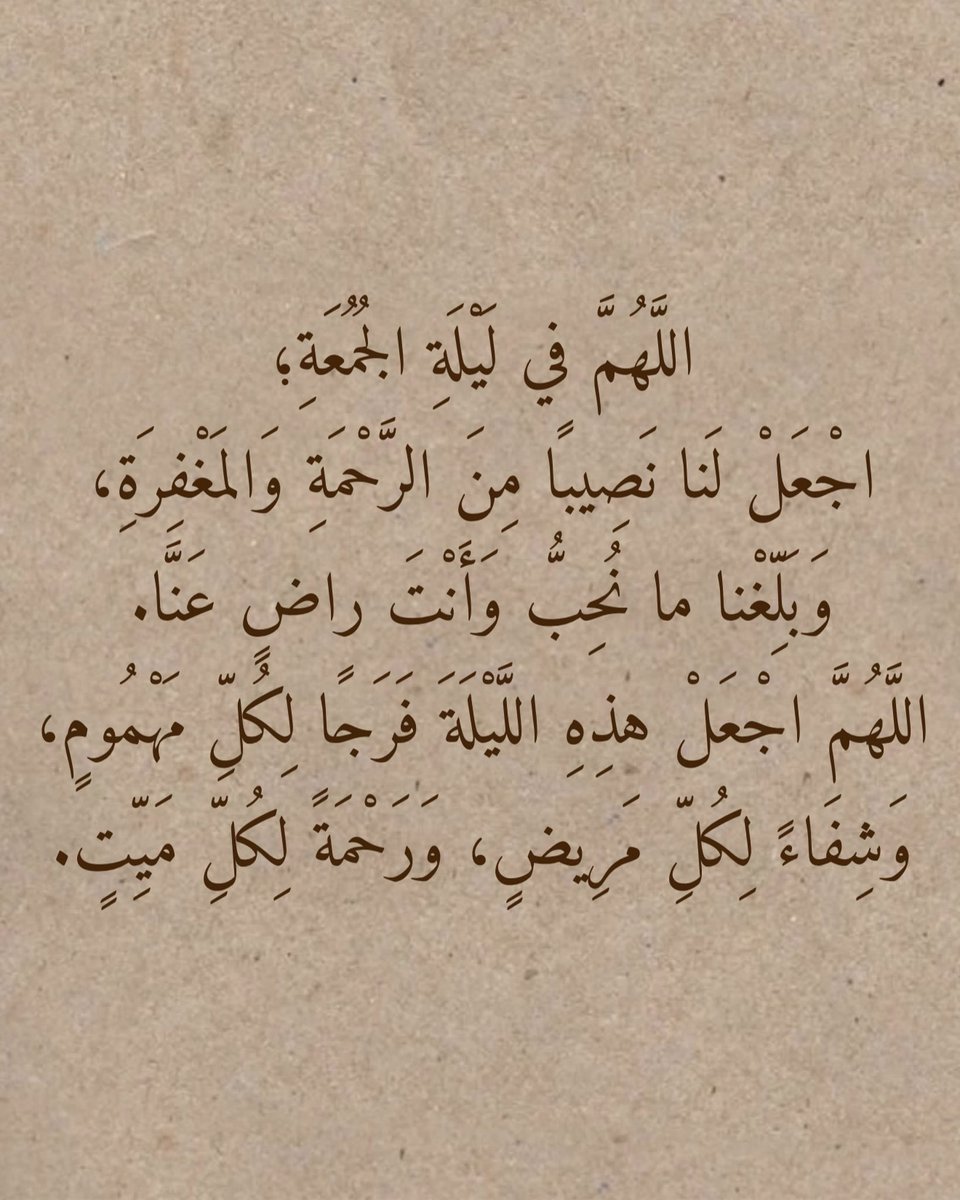 اللَّهُمَّ في لَيْلَةِ الجُمُعَةِ؛
اجْعَلْ لَنا نَصِيباً مِنَ الرَّحْمَةِ وَالمَغْفِرَةِ،
وَبَلِّغْنا ما نُحِبُّ وَأَنْتَ راضٍ عَنَّا.
اللَّهُمَّ اجْعَلْ هذِهِ اللَّيْلَةَ فَرَجًا لِكُلِّ مَهْمُومٍ،
وَشِفَاءً لِكُلِّ مَرِيضٍ، وَرَحْمَةً لِكُلِّ مَيِّتٍ.